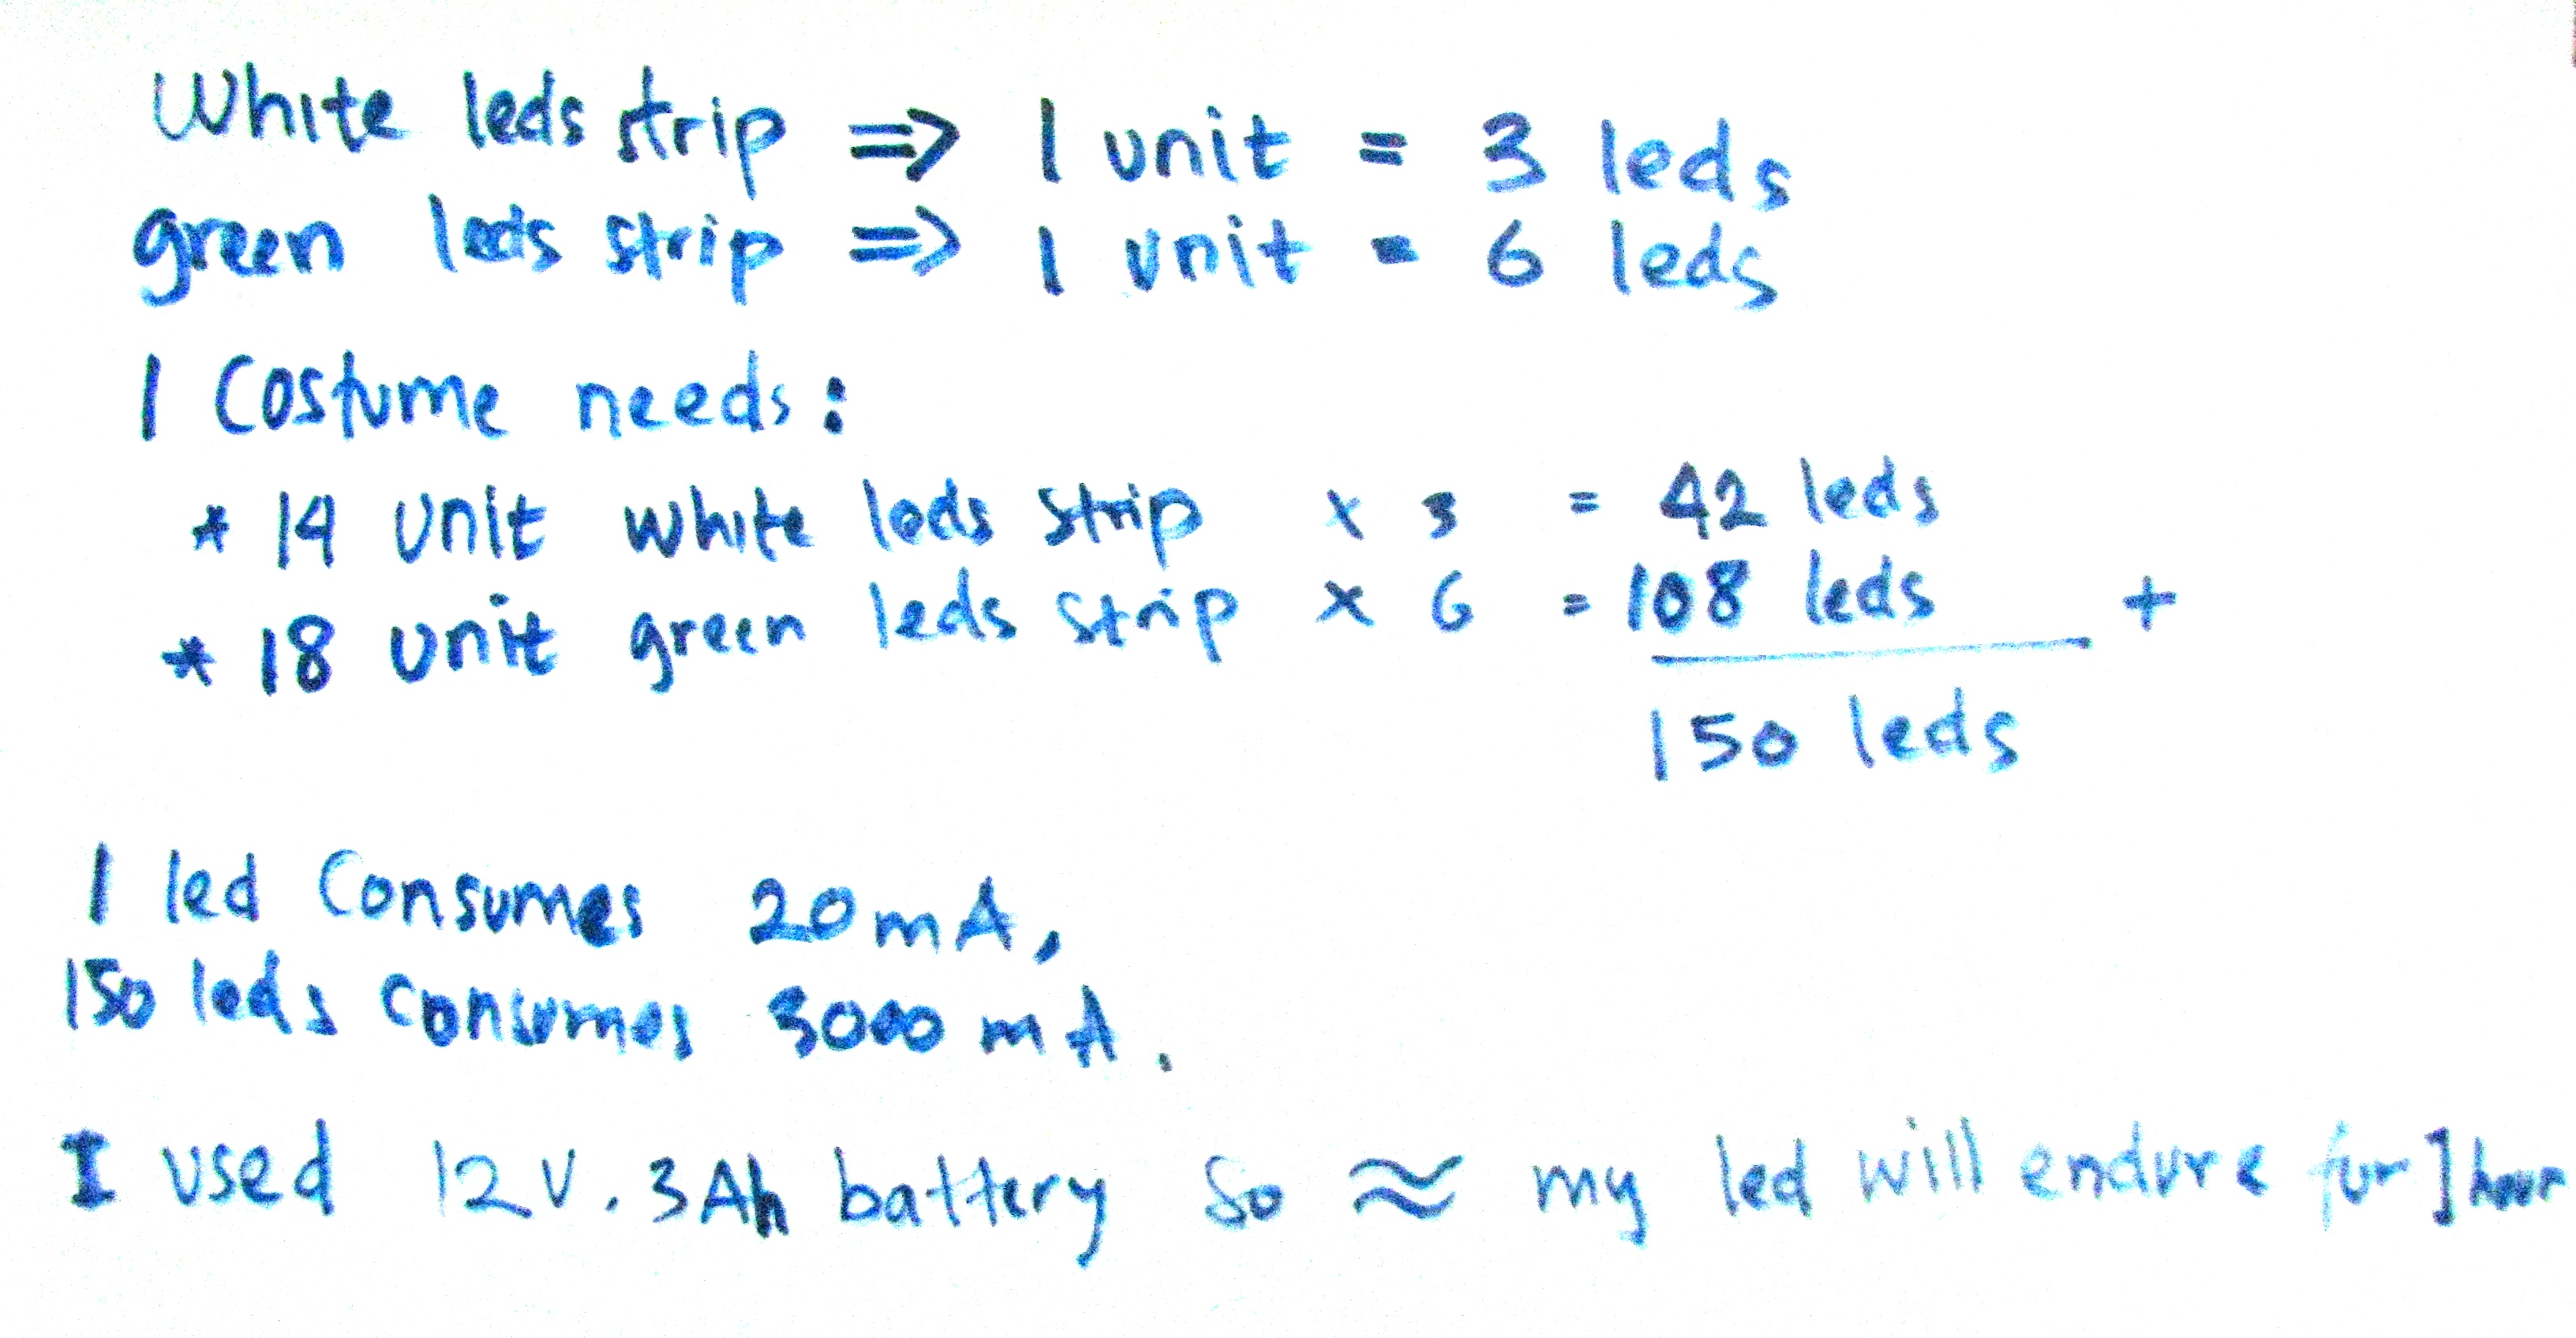 White leds strip ⇒ 1 unit = 3 leds
green leds strip ⇒ 1 unit = 6 leds
1 Costume needs :
* 14 unit white leds strip x 3 = 42 leds
* 18 unit green leds strip x 6 = 108 leds +
150 leds
1 led Consumes 20 mA,
150 leds consumes 3000 mA.
I used 12 v. 3Ah battery so ≈ my led will endure for 1 hour